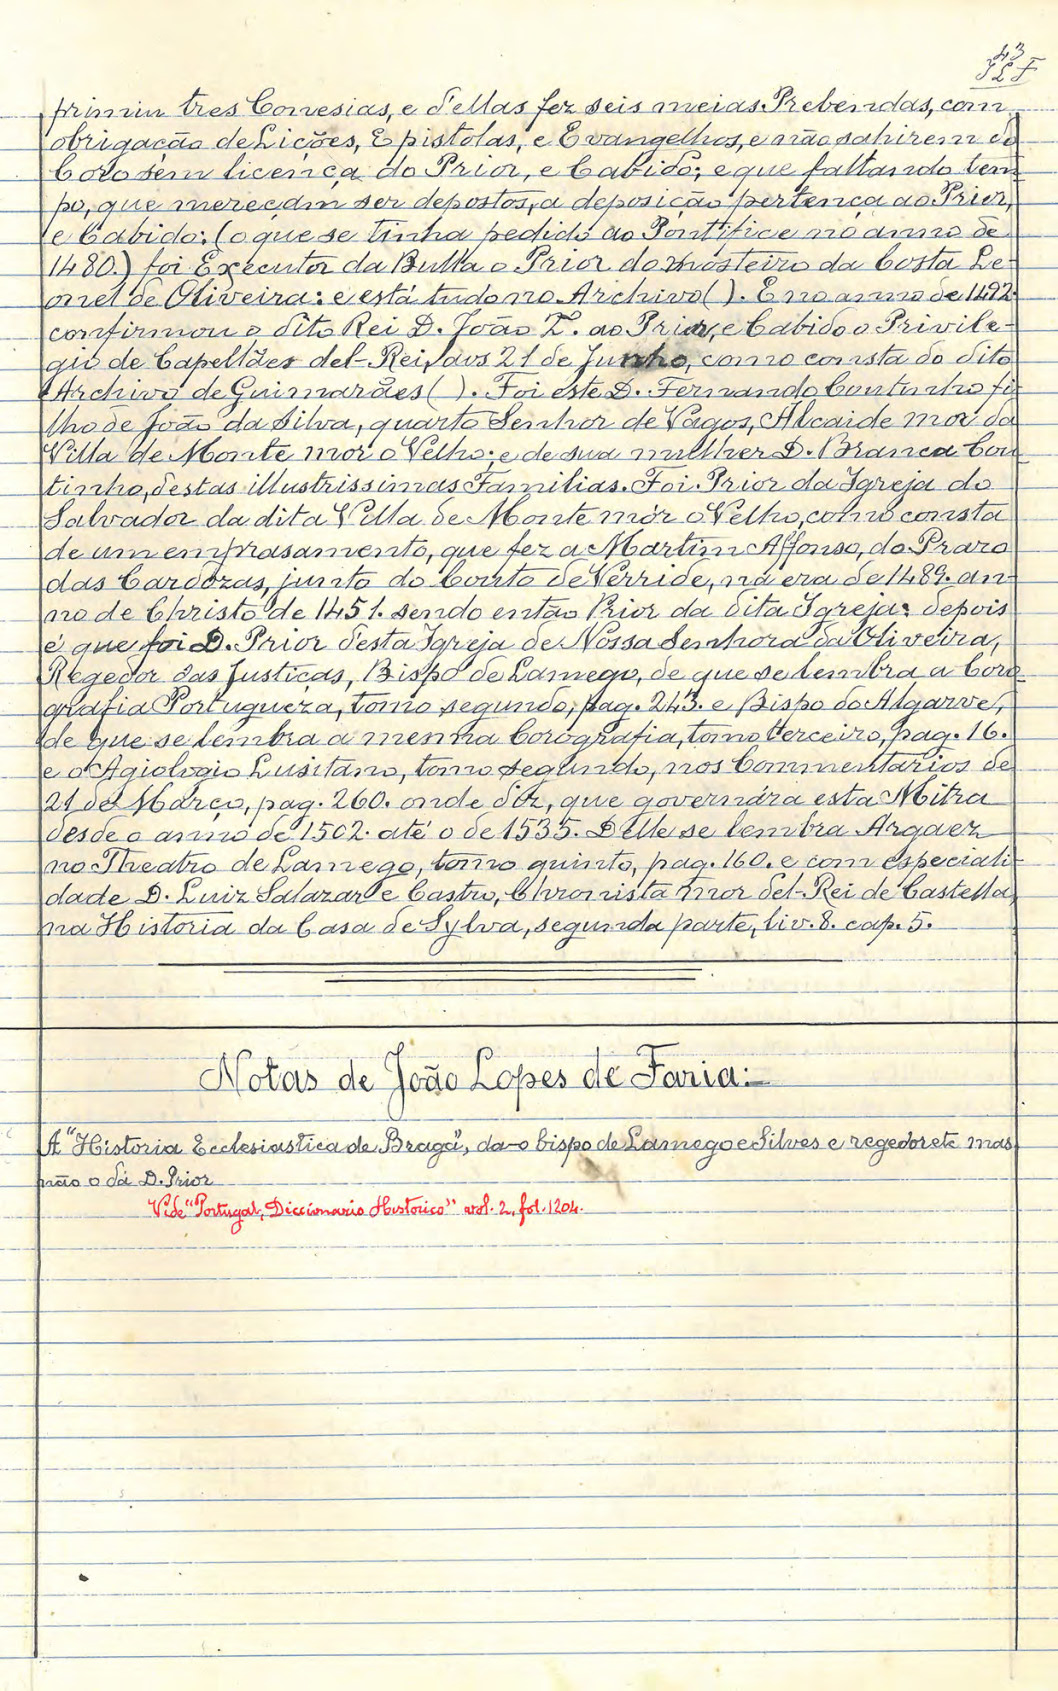 43
JLF
primiu tres Conesias, e d'ellas fez seis meias Prebendas, com
obrigação de Lições, Epistolas, e Evangelhos, e não sahirem do
Coro sem licença do Prior, e Cabido; e que faltando tem
po, que mereçam ser depostos, a deposição pertença ao Prior,
e Cabido: (o que se tinha pedido ao Pontifice no anno de
1480.) foi Executor da Bulla o Prior do mosteiro da Costa Le-
onel de Oliveira: e está tudo no Archivo ( ). E no anno de 1492.
confirmou o dito Rei D. João 2º. ao Prior, e Cabido o Privile-
gio de Capellães del-Rei, aos 21 de Junho, como consta do dito
Archivo de Guimarães ( ). Foi este D. Fernando Coutinho fi
lho de João da Silva, quarto Senhor de Vagos, Alcaide mor da
Villa de Monte mor o Velho; e de sua mulher D. Branca Cou
tinho, destas illustrissimas Familias. Foi Prior da Igreja do
Salvador da dita Villa de Monte mór o Velho, como consta
de um emprasamento, que fez a Martim Affonso, do Prazo
das Cardozas, junto do Couto de Verride, na era de 1489. an-
no de Christo de 1451. sendo então Prior da dita Igreja: depois
é que foi D. Prior desta Igreja de Nossa Senhora da Oliveira,
Regedor das Justiças, Bispo de Lamego, de que se lembra a Coro
grafia Portugueza, tomo segundo, pag. 243. e Bispo do Algarve,
de que se lembra a mesma Corografia, tomo terceiro, pag. 16.
e o Agiologio Lusitano, tomo segundo, nos Commentarios de
21 de Março, pag. 260. onde diz, que governára esta Mitra
desde o anno de 1502. até o de 1535. Delle se lembra Argaez
no Theatro de Lamego, tomo quinto, pag. 160. e com especiali-
dade D. Luiz Salazar e Castro, Chronista mor del-Rei de Castella,
na Historia da Casa de Sylva, segunda parte, liv. 8. cap. 5.
Notas de João Lopes de Faria:-
A "Historia Ecclesiastica de Braga", da-o bispo de Lamego e Silves e regedor etc mas
não o dá D. Prior
Vide "Portugal, Diccionario Historico" vol. 2, fol. 1204.